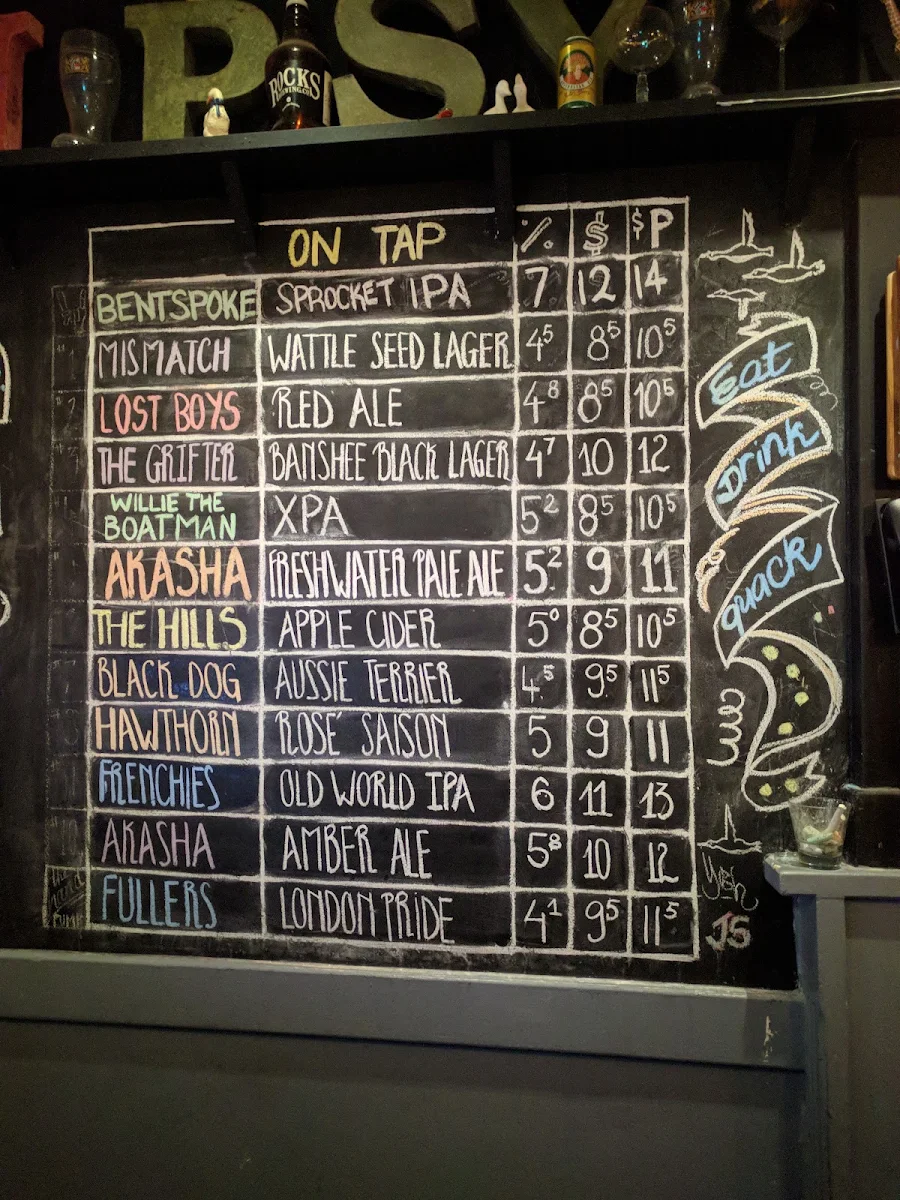 IPSY
ROCKS
BREWING CO.
ON TAP % $ $P
BENTSPOKE SPROCKET IPA 7 12 14
MISMATCH WATTLE SEED LAGER 4⁵ 8⁵ 10⁵
LOST BOYS RED ALE 4⁸ 8⁵ 10⁵
THE GRIFTER BANSHEE BLACK LAGER 4⁷ 10 12
WILLIE THE
BOATMAN XPA 5² 8⁵ 10⁵
AKASHA FRESHWATER PALE ALE 5² 9 11
THE HILLS APPLE CIDER 5⁰ 8⁵ 10⁵
BLACK DOG AUSSIE TERRIER 4.⁵ 9⁵ 11⁵
HAWTHORN ROSÉ SAISON 5 9 11
FRENCHIES OLD WORLD IPA 6 11 13
AKASHA AMBER ALE 5⁸ 10 12
FULLERS LONDON PRIDE 4¹ 9⁵ 11⁵
Eat
Drink
quack
JS